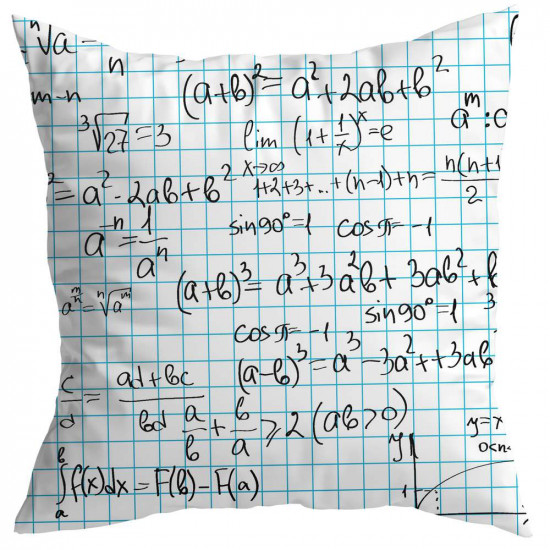 ⁿ√a =
n
(a+b)² = a² + 2ab + b²
m-n
³√27 = 3
lim (1 + 1/x)ˣ = e
x→∞
aᵐ : a
= a² - 2ab + b²
1+2+3+...+(n-1)+n = n(n+1 / 2
a⁻ⁿ = 1/aⁿ
sin90° = 1
cosπ = -1
(a+b)³ = a³ + 3a²b + 3ab² + b
a^(m/n) = ⁿ√aᵐ
sin90° = 1
3
cosπ = -1
(a-b)³ = a³ - 3a² + +3ab
c/d = ad+bc / bd
a/b + b/a ⩾ 2 (ab>0)
y=x
0<n
y
1
∫ₐᵇ f(x)dx = F(b) - F(a)